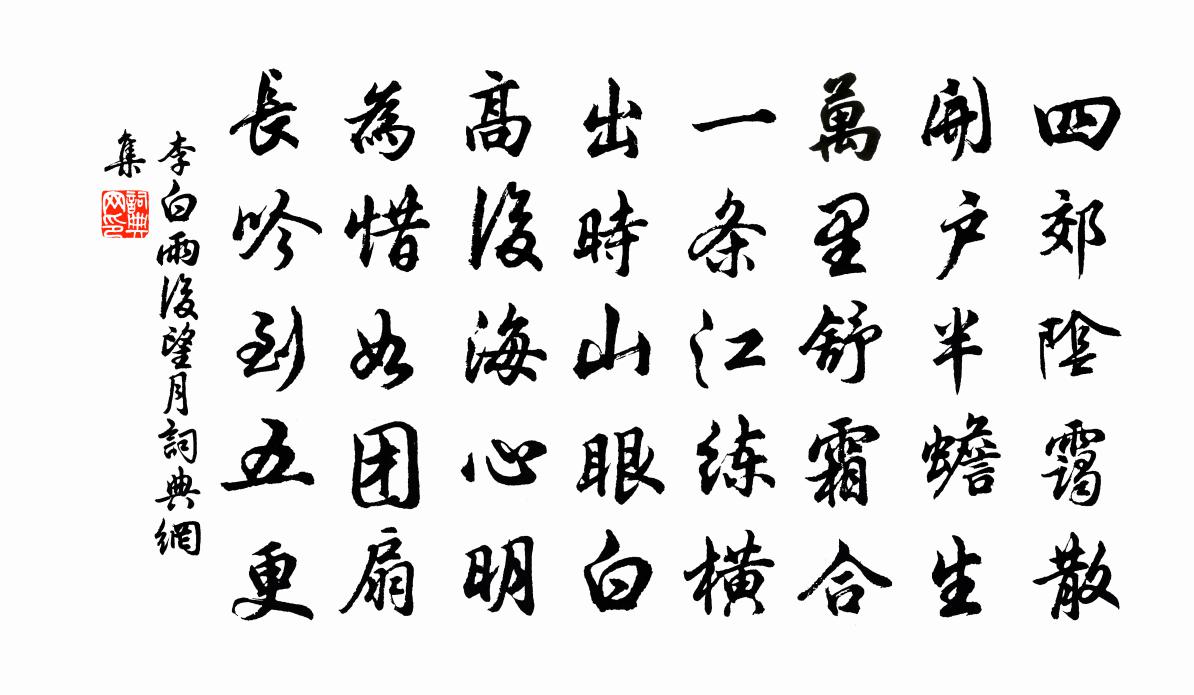 四郊陰靄散
開户半蟾生
萬里舒霜合
一条江练横
出時山眼白
高後海心明
為惜如团扇
長吟到五更
李白雨後望月詞典網
集
詞典
网印